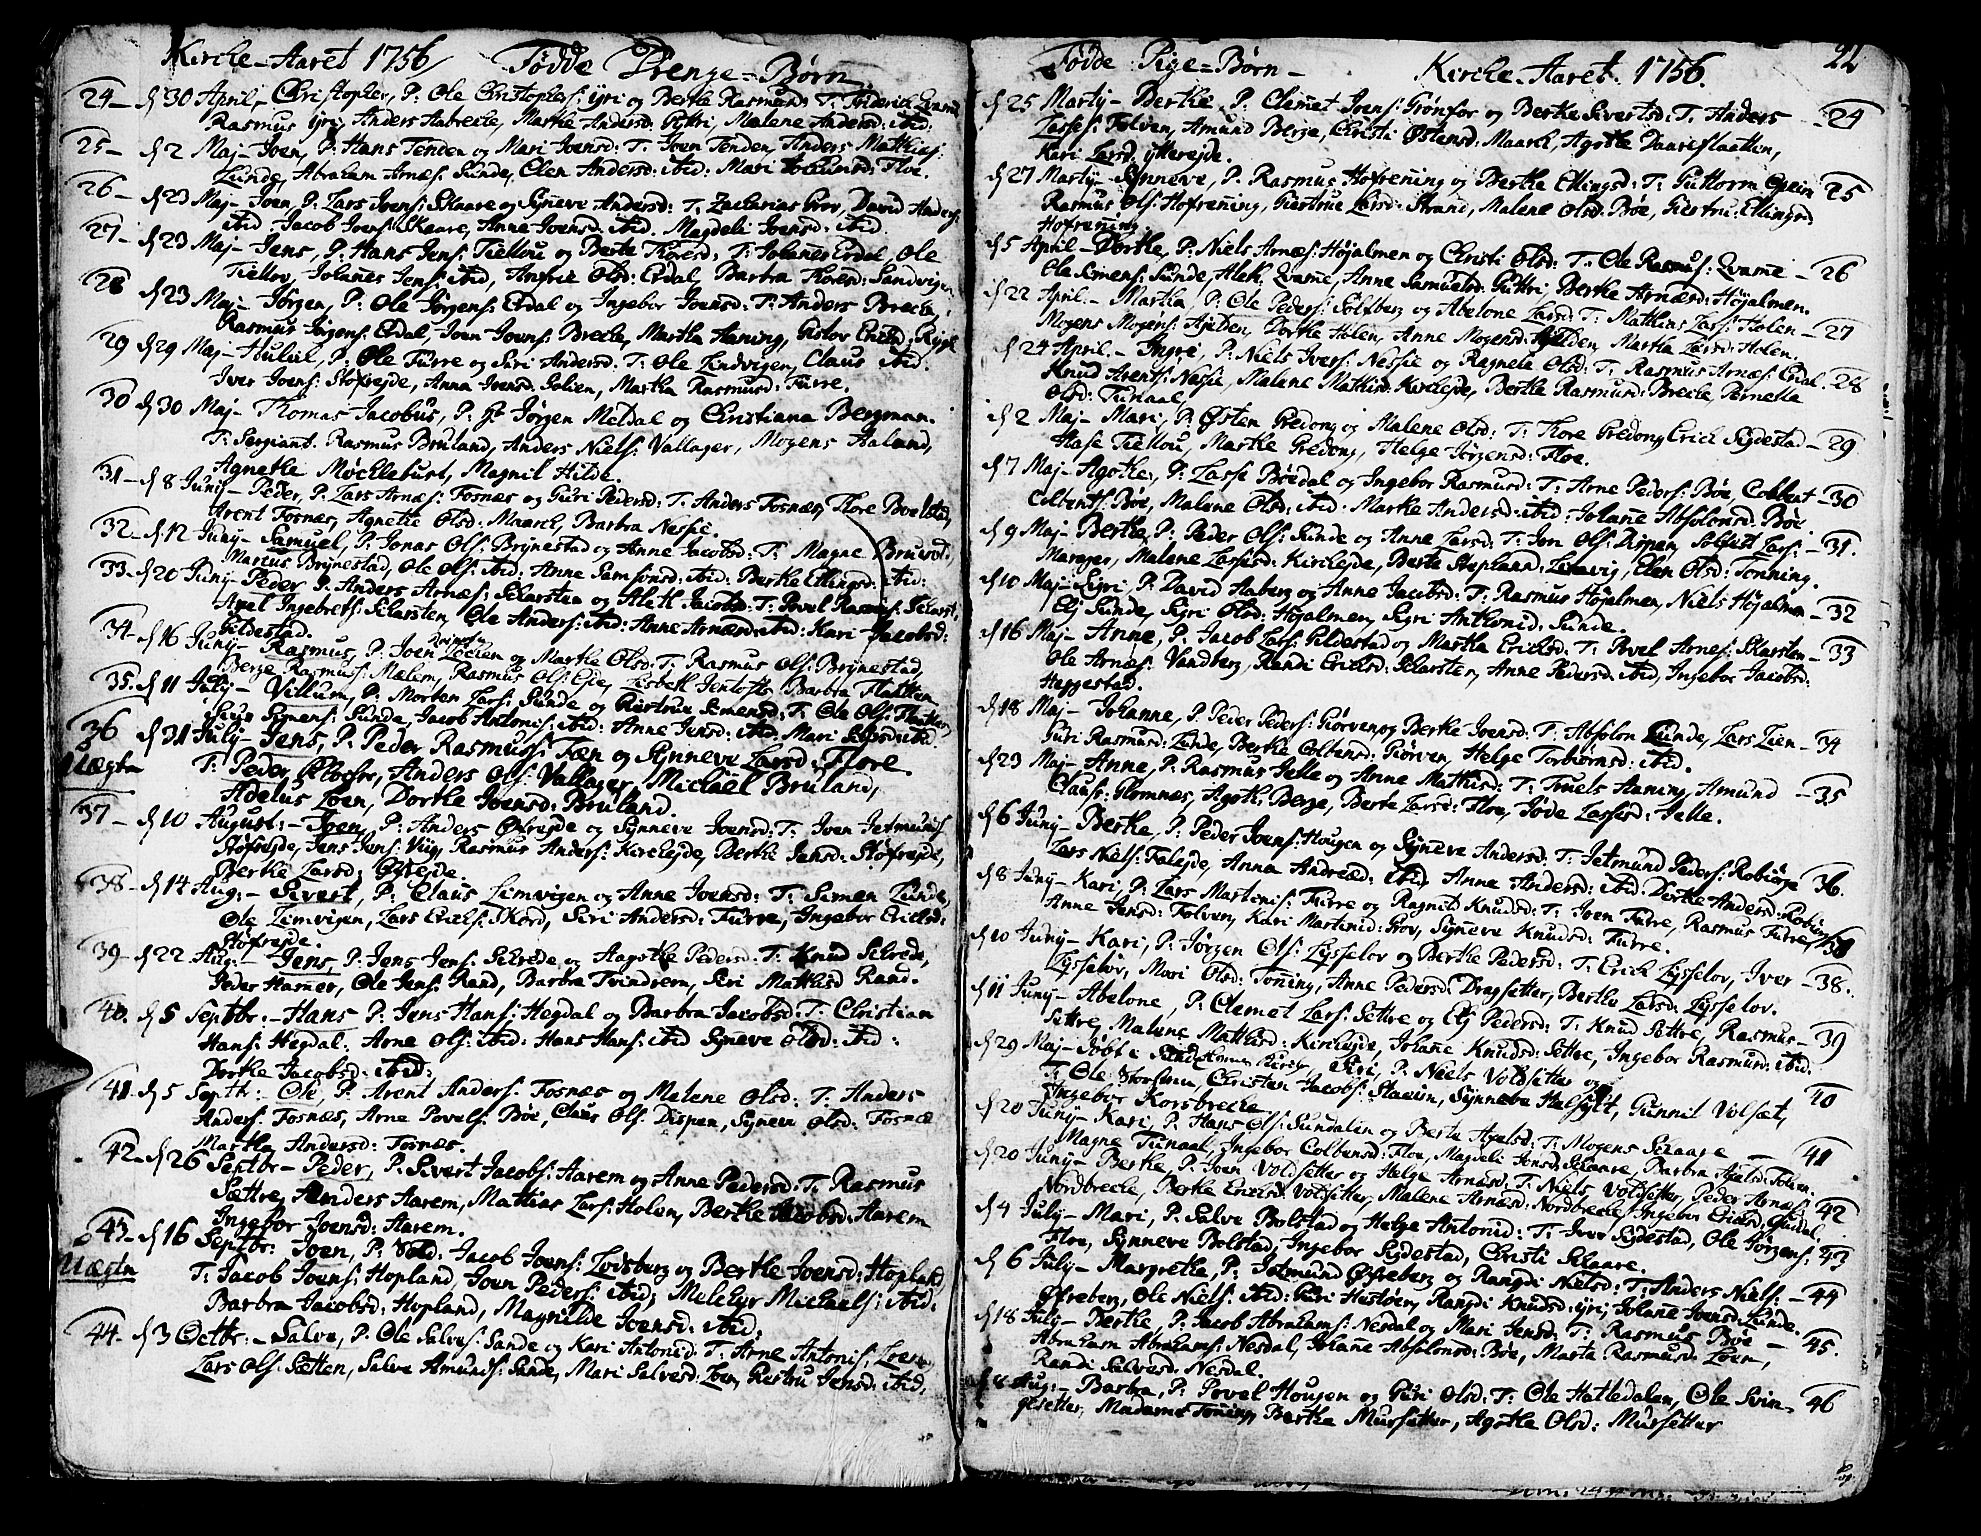 Kirche-Aaret 1756 Fødde Drenge-Børn
24- d 30 April- Christopher, P: Ole Christophers: ijri og Berthe Rasmusd: T:
Rasmus ijri, Anders Aabrecke, Marthe Andersd: Gytri, Malene Andersd: ibid.
25- d 2 Maj- Joen, P: Hans Tenden og Mari Joensd: T: Joen Tenden, Anders Mathias:
Lunde, Abraham Arnæs: Sunde, Elen Andersd: ibid: Mari Floe.
26- d 23 Maj- Joen, P: Lars Joens: Skaare og Synneve Andersd: T: Zacharias Grov, David Anders:
ibid Jacob Joens: Skaare, Anne Joensd: ibid. Magdeli Joensd: ibid.
27- d 23 Maj- Jens, P: Hans Jens: Tiellou og Berte Thoresd: T: Johannes Erdal, Ole
Tiellov, Johanes Jens: ibid, Anfrie Olsd: Erdal, Barbra Thoresd: Sandvigen
28 d 23 Maj- Jørgen, P: Ole Jørgens: Erdal og Ingebor Joensd: T: Anders Brecke,
Rasmus Jørgens: Erdal, Joen Joens: Brecke, Martha Haning, Gistov
29 d 29 Maj- P: Ole Furre og Siri Andersd: T: Ole Lindvigen, Claus ibid.
Iver Joens: Støfrejde, Anna Joensd: Folien, Martha Rasmusd: Furre.
30 d 30 Maj- Thomas Jacobus, P: Hr Jørgen Meldal og Christiana Bergman.
T: Sergiant. Rasmus Bruland, Anders Niels: Vallager, Mogens Aaland,
Agnethe Mochlebust, Magnil Hilde.
31- d 8 Juny- Peder, P: Lars Arnæs: Fosnæs og Guri Pedersd: T: Anders Fosnæs, Thore Bolstad,
Arent Fosnæs, Agnethe Olsd: Maarck, Barbra Nessie.
32- d 12 Juny- Samuel, P: Jonas Ols: Brynestad og Anne Jacobsd: T: Magne
Marcus Brynestad, Ole Ols: ibid: Anne Samsonsd: ibid: Berthe Ellingsd: ibid:
33- d 20 Juny- Peder P: Anders Arnæs: Skarsten og Aleth Jacobsd: T: Povel Rasmus: Skarst:
Axel Ingebrets: Skarsten, Ole Anders: ibid: Anne Arnæsd: ibid: Kari Jacobsd:
Gildestad.
34- d 16 Juny- Rasmus, P: Joen Løcken og Marthe Olsd: T: Rasmus Ols: Brynestad
Berge Rasmus: Mælem, Rasmus Ols: Eje, Lisbeth Jentoft, Barbra Flatten
35. d 11 July- Villum, P: Morten Lars: Sunde og Giertrue Simensd: T: Ole Ols:
Simens: Sunde, Jacob Antonis: ibid: Anne Jensd: ibid. Mari ibid.
36 d 31 July- Jens, P: Peder Rasmuss: Fæn og Synneve Larsd: Flore
Uægte T: Peder Anders Ols: Vallager, Michael Bruland,
Adelus Loen, Dorthe Joensd: Bruland.
37- d 10 August:- Joen, P: Anders Øfrejde og Synneve Joensd: T: Joen Jetmunds:
Støfrejde, Jens Jens: Viig, Rasmus Anders: Kirchejde, Berthe Jensd: Støfrejde,
Berthe Larsd: Øfrejde.
38- d 14 Aug:- Sivert, P: Claus Limvigen og Anne Joensd: T: Simen Lunde,
Ole Limvigen, Lars Erichs: Skord, Siri Andersd: Furre, Ingebor Erichsd:
Støfrejde.
39- d 22 Aug:- Jens, P: Jens Jens: Schrede og Aagothe Pedersd: T: Knud Schrede,
Peder Hamer, Ole Jens: Rand, Barbra Tvindrem, Siri Mathisd Rand.
40. d 5 Septbr:- Hans P: Jens Hans: Hegdal og Barbra Jacobsd: T: Christian
Hans: Hegdal. Arne Ols: ibid: Hans Hans: ibid Synneve Olsd: ibid:
Dorthe Jacobsd: ibid:
41- d 5 Septb: Ole, P: Arent Anders: Fosnæs og Malene Olsd: T: Anders
Anders: Fosnæs, Arne Povels: Bøe, Claus Ols: Dispen, Synneve Olsd: Fosnæ
Martha Andersd: Fosnæs.
42- d 26 Septbr- Peder, P: Sivert Jacobs: Aarem og Anne Pedersd: T: Rasmus
Sættre, Anders Aarem, Mathias Lars: Holen, Berthe Jacobsd: Aarem
Ingebor Joensd: Aarem.
43- d 16 Septbr: Joen, P: Sold: Jacob Joens: Lødsberg og Berthe Joensd: Hopland
Uægte T: Jacob Joens: Hopland, Joen Peders: ibid, Melchyr Michaels: ibid:
Barbra Jacobsd: Hopland, Magnilde Joensd: ibid:
44- d 3 Octbr:- Salve, P: Ole Salves: Sande og Kari Antonid: T: Arne Antonis: Loen,
Lars Ols: Sætten, Salve Amunds: Sande, Mari Salvesd: Loen, Giestru Jensd: ibid,
22
Fødde Pige-Børn- Kirche-Aaret. 1756.
d 25 Marty- Berthe, P. Clemet Joens: Grønfor og Berthe Sivertsd: T: Anders -24
Lasses: Folven, Amund Berge, Christi Østensd: Maarck, Agothe Daareflaatten,
Kari Larsd: ytterejde.
d 27 Marty- Synneve, P. Rasmus Hofrening og Berthe Ellingsd: T: Guttorm 25
Rasmus Ols: Hofrenning, Giertrue Larsd: Strand, Malene Olsd: Bøe, Giestru Ellingsd
Hofrening.
d 5 April- Dorthe, P: Niels Arnæs: Højalmen og Christi Olsd: T: Ole Rasmus: Qvame -26
Ole Simens: Sunde, Aleth: Qvame, Anne Samuelsd: Gyttri Berthe Arnæsd: Højalmen.
d 22 April:- Martha, P: Ole Peders: Solfberg og Abelone Larsd: T: Mathias Lars: Holen -27
Mogens Mogens: Hjelden, Dorthe Holen, Anne Mogensd: Hjelden, Martha Larsd: Holen.
d 24 April.- Ingri, P: Niels Ivers: Nessie og Ragnele Olsd: T: Rasmus Arnæs: Erdal. 28
Knud Arents: Nessie, Malene Mathisd: Kirchejde, Berthe Rasmusd: Brecke, Pernelle
Olsd: Tunaal.
d 2 Maj- Mari, P. Østen Fredong og Malene Olsd: T: Thore Fredong Erich Sydestad -29
Aase Tiellou, Marthe Fredong, Helge Jørgensd: Floe.
d 7 Maj- Agothe, P: Lasse Brædal og Ingebor Rasmusd: T: Arne Peders: Bøe, Colbent -30
Colbents: Bøe, Malene Olsd: ibid: Marthe Andersd: ibid: Johane Absolonsd: Bøe
d 9 Maj- Berthe, P: Peder Ols: Sunde og Anne Larsd: T: Jon Ols: Dispen, Solfest Lars: -31.
Marager, Malene Larsd: Kirchejde, Berte Stephansd: Leervig, Elen Olsd: Tonning.
d 10 Maj- Sigri, P: David Aaberg og Anne Jacobsd: T: Rasmus Højalmen, Niels Højalmen -32
Elj Sunde, Sigri Olsd: Højalmen, Sigri Anthonid: Sunde.
d 16 Maj- Anne, P: Jacob Lars: Gildestad og Martha Erichsd: T: Povel Arnes: Skarsten -33
Ole Arnæs: Vandberg, Randi Erichsd: Skarsten, Anne Pedersd: ibid, Ingebor Jacobsd:
Heggestad.
d 18 Maj- Johanne, P: Peder Peders: Giørven og Berthe Joensd: T: Absolon Lunde, Lars Lien -34
Guri Rasmusd: Lunde, Berthe Colbensd: Giørven, Helge Torbiørnsd: ibid.
d 23 Maj- Anne, P: Rasmus Jelle og Anne Mathisd: T: Truels Haning, Amund -35
Claus: Glomnes, Agoth: Berge, Berte Larsd: Floe, Jøde Lassesd: Jelle.
d 6 Juny- Berthe, P: Peder Joens: Hougen og Synneve Andersd: T: Jetmund Peders: Robiørge 36.
Lars Niels: Falejde, Anna Andread: ibid Anne Andersd: ibid: Dorthe Andersd: Robiørge
d 8 Juny- Kari, P: Lars Martinis: Furre og Ragnild Knudsd: T: Joen Furre, Rasmus Furre,
Anne Jensd: Folven, Kari Martinid: Grov, Synneve Knudsd: Furre.
d 10 Juny- Kari, P: Jørgen Ols: Lysselov og Berthe Pedersd: T: Erich Lysselov, Iver -38.
Lysselov, Mari Olsd: Tonning, Anne Pedersd: Dragsetter, Berthe Larsd: Lysselov.
d 11 Juny- Abelone, P: Clemet Lars: Settre og Elj Pedersd: T: Knud Settre, Rasmus -39
Settre, Malene Mathisd: Kirchejde, Johane Knudsd: Settre, Ingebor Rasmusd: ibid.
d 29 Maj- Døbt i Siri, P: Niels Voldsetter og 40
Ingebor Korsbrecke T: Ole Christen Jacobs: Staeim, Synneve Helsylt, Gunnil Volset,
d 20 Juny- Kari, P: Hans Ols: Sundalin og Berte Axelsd: T: Mogens Skaare - 41
Magne Tunaal, Ingebor Colbensd: Floe, Magdeli Jensd: Skaare, Barbra Axelsd: Folven.
d 20 Juny- Berthe, P: Joen Voldsetter og Helge Arnæsd: T: Niels Voldsetter, Peder Arnæs: 42
Nordbrecke, Berthe Erichsd: Voldsetter, Malene Arnæsd: Nordbrecke, Ingebor Erichsd:
d 4 July- Mari, P: Salve Bolstad og Helge Antonid: T: Iver Sydestad, Ole Jørgens: 43
Floe, Synneve Bolstad, Ingebor Sydestad, Christi Skaare.
d 6 July- Margrethe, P: Jetmund Øfreberg og Rangdi Nielsd: T: Anders Niels. -44
Øfreberg, Ole Niels: ibid: Guri Hestøen, Rangdi Knudsd: ijri, Johane Joensd: Lunde.
d 18 July- Berthe, P: Jacob Abrahams: Nesdal og Mari Jensd: T: Rasmus Bøe - 45.
Abraham Abrahams: Nesdal, Johane Absolonsd: Bøe, Marta Rasmusd: Loen,
Randi Salvesd: Nesdal.
d 8 Aug:- Barbra, P: Povel Hougen og Guri Olsd: T: Ole Hatledalen, Ole Svin- 46
gesetter, Madame Tonning, Berthe Mursetter, Agothe Olsd: Mursetter